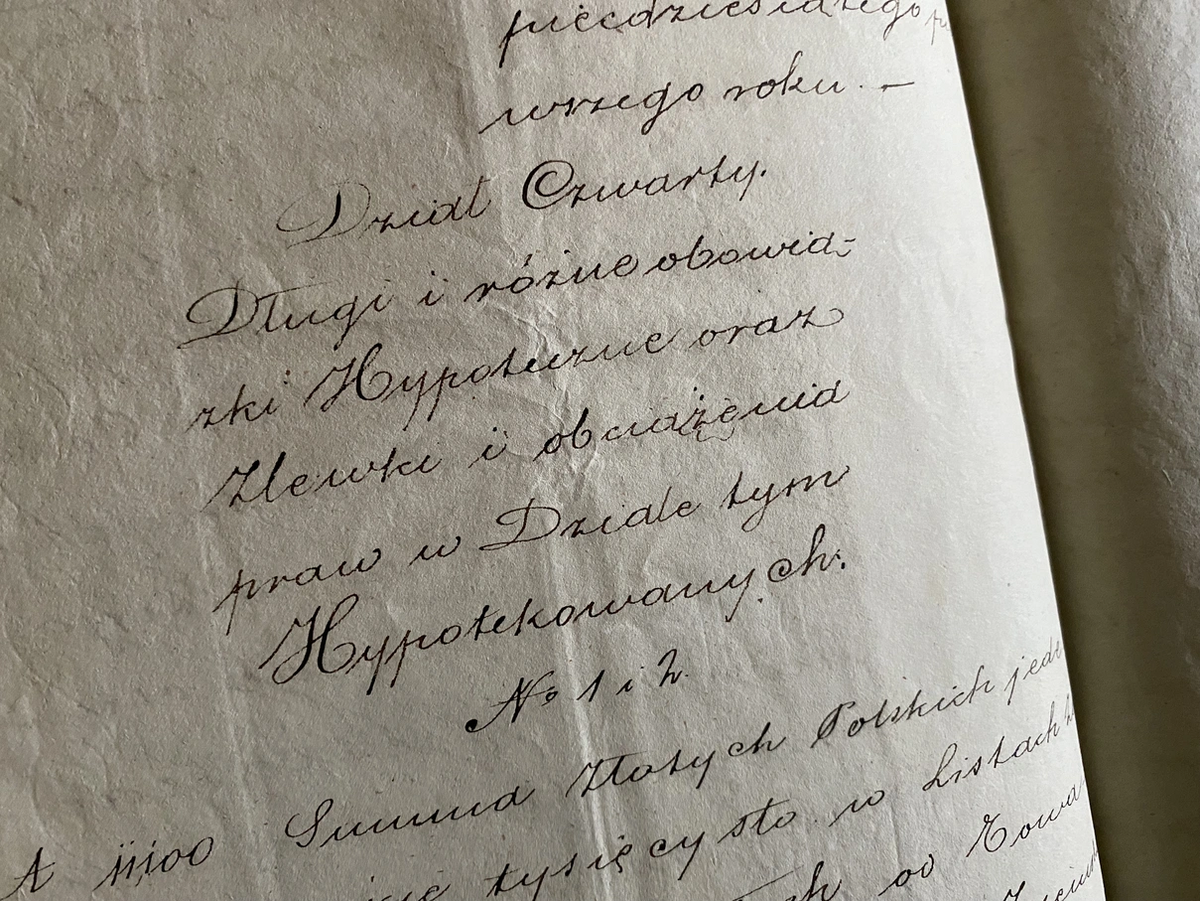 pięćdziesiątego
wszego roku. –
Dział Czwarty.
Długi i różne obowią-
zki Hypoteczne oraz
Zlewki i obciążenia
praw w Dziale tym
Hypotekowanych.
№ 1 i 2.
11100 Summa Złotych Polskich jede
tysięcy sto w Listach
od Towa